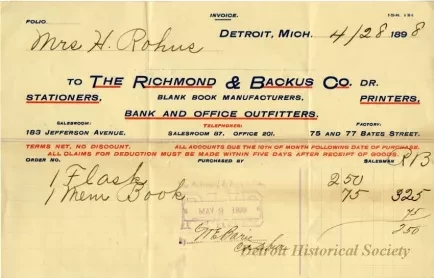 INVOICE.
FOLIO
DETROIT, MICH. 4/28 1898
Mrs H. Rohns
TO THE RICHMOND & BACKUS CO. DR.
STATIONERS, BLANK BOOK MANUFACTURERS, PRINTERS,
BANK AND OFFICE OUTFITTERS.
SALESROOM: TELEPHONES: FACTORY:
183 JEFFERSON AVENUE. SALESROOM 87. OFFICE 201. 75 AND 77 BATES STREET.
TERMS NET, NO DISCOUNT. ALL ACCOUNTS DUE THE 10TH OF MONTH FOLLOWING DATE OF PURCHASE.
ALL CLAIMS FOR DEDUCTION MUST BE MADE WITHIN FIVE DAYS AFTER RECEIPT OF GOODS.
ORDER NO. PURCHASED BY SALESMAN RB
1 Flask 2 50
1 Mem Book 75 3 25
75
2 50
MAY 9
Detroit Historical Society